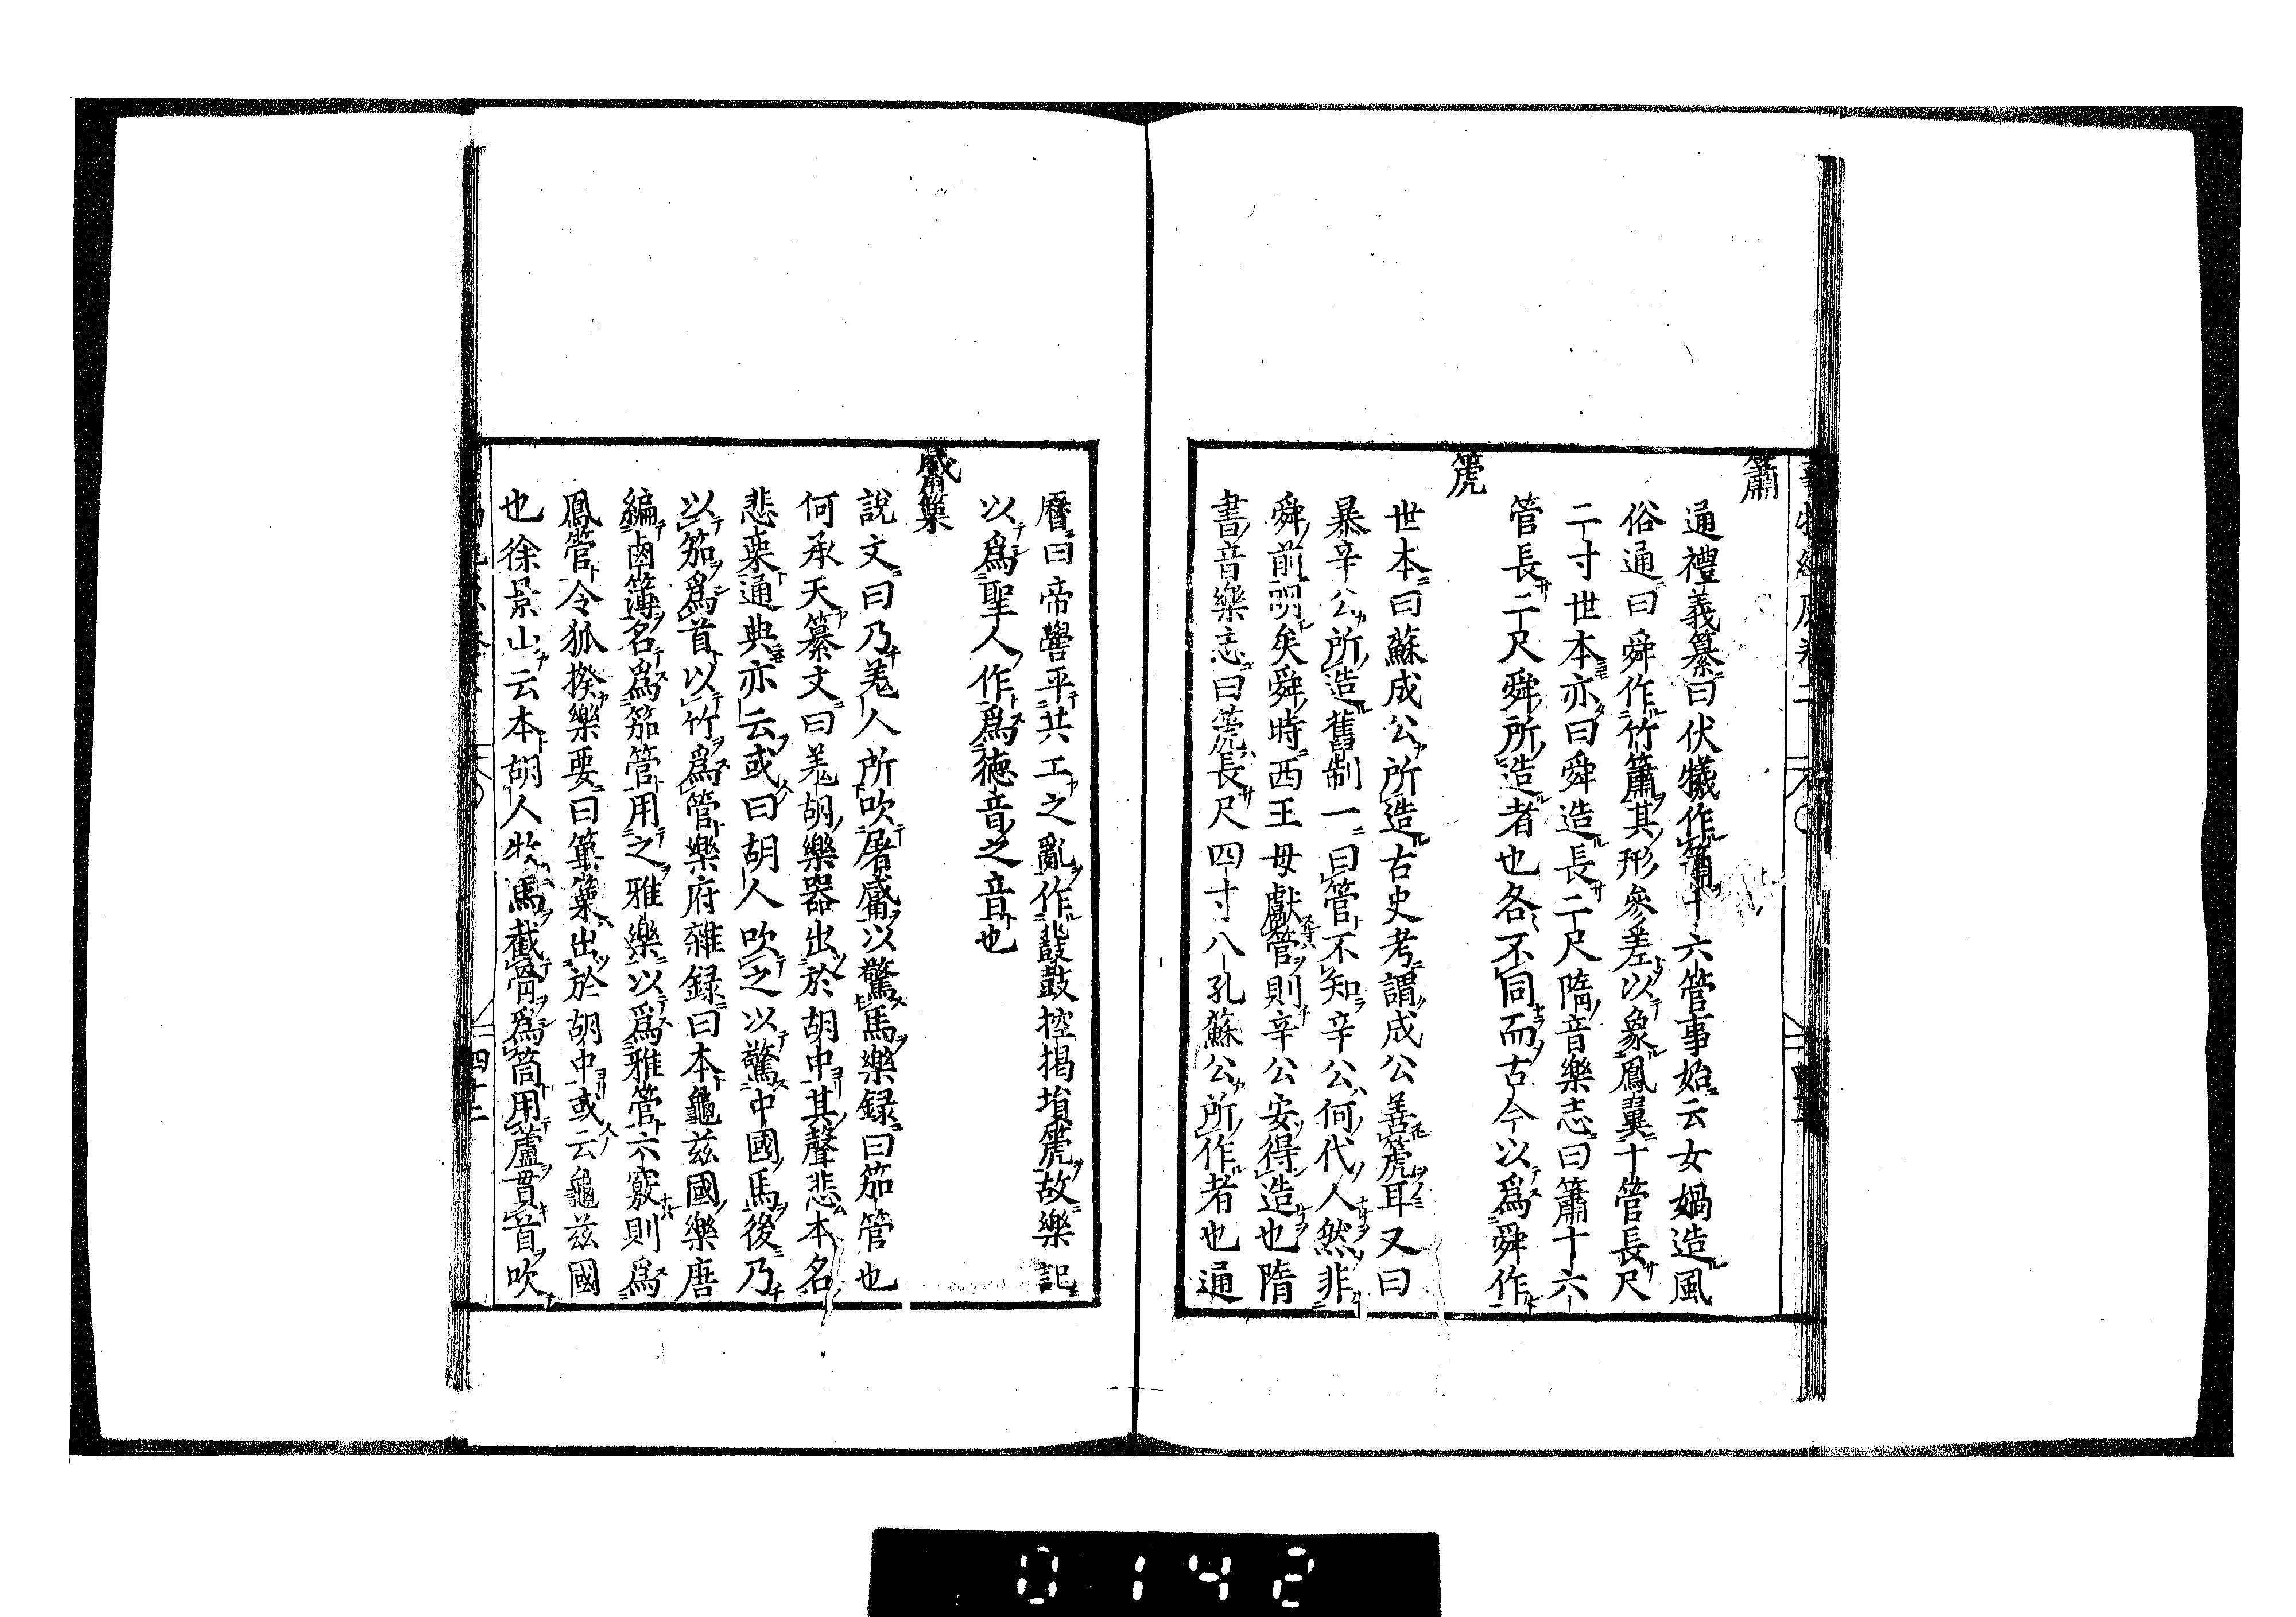 簫
通禮義纂曰伏犧作簫十六管事始云女媧造風
俗通曰舜作竹簫其形參差以象鳳翼十管長尺
二寸世本亦曰舜造長二尺隋音樂志曰簫十六
管長二尺舜所造者也各不同而古今以爲舜作
箎
世本曰蘇成公所造古史考謂成公善箎耳又曰
暴辛公所造舊制一曰管不知辛公何代人然非
舜前明矣舜時西王母獻管則辛公安得造也隋
書音樂志曰箎長尺四寸八孔蘇公所作者也通
曆曰帝嚳平共工之亂作鼙鼓控揭塤箎故樂記
以爲聖人作爲德音之音也
觱篥
說文曰乃羌人所吹屠觱以驚馬樂録曰笳管也
何承天纂文曰羌胡樂器出於胡中其聲悲本名
悲栗通典亦云或曰胡人吹之以驚中國馬後乃
以笳爲首以竹爲管樂府雜録曰本龜兹國樂唐
編鹵簿名爲笳管用之雅樂以爲雅管六竅則爲
鳳管令狐揆樂要曰篳篥出於胡中或云龜兹國
也徐景山云本胡人牧馬截骨爲筒用蘆貫首吹
四十二
0142